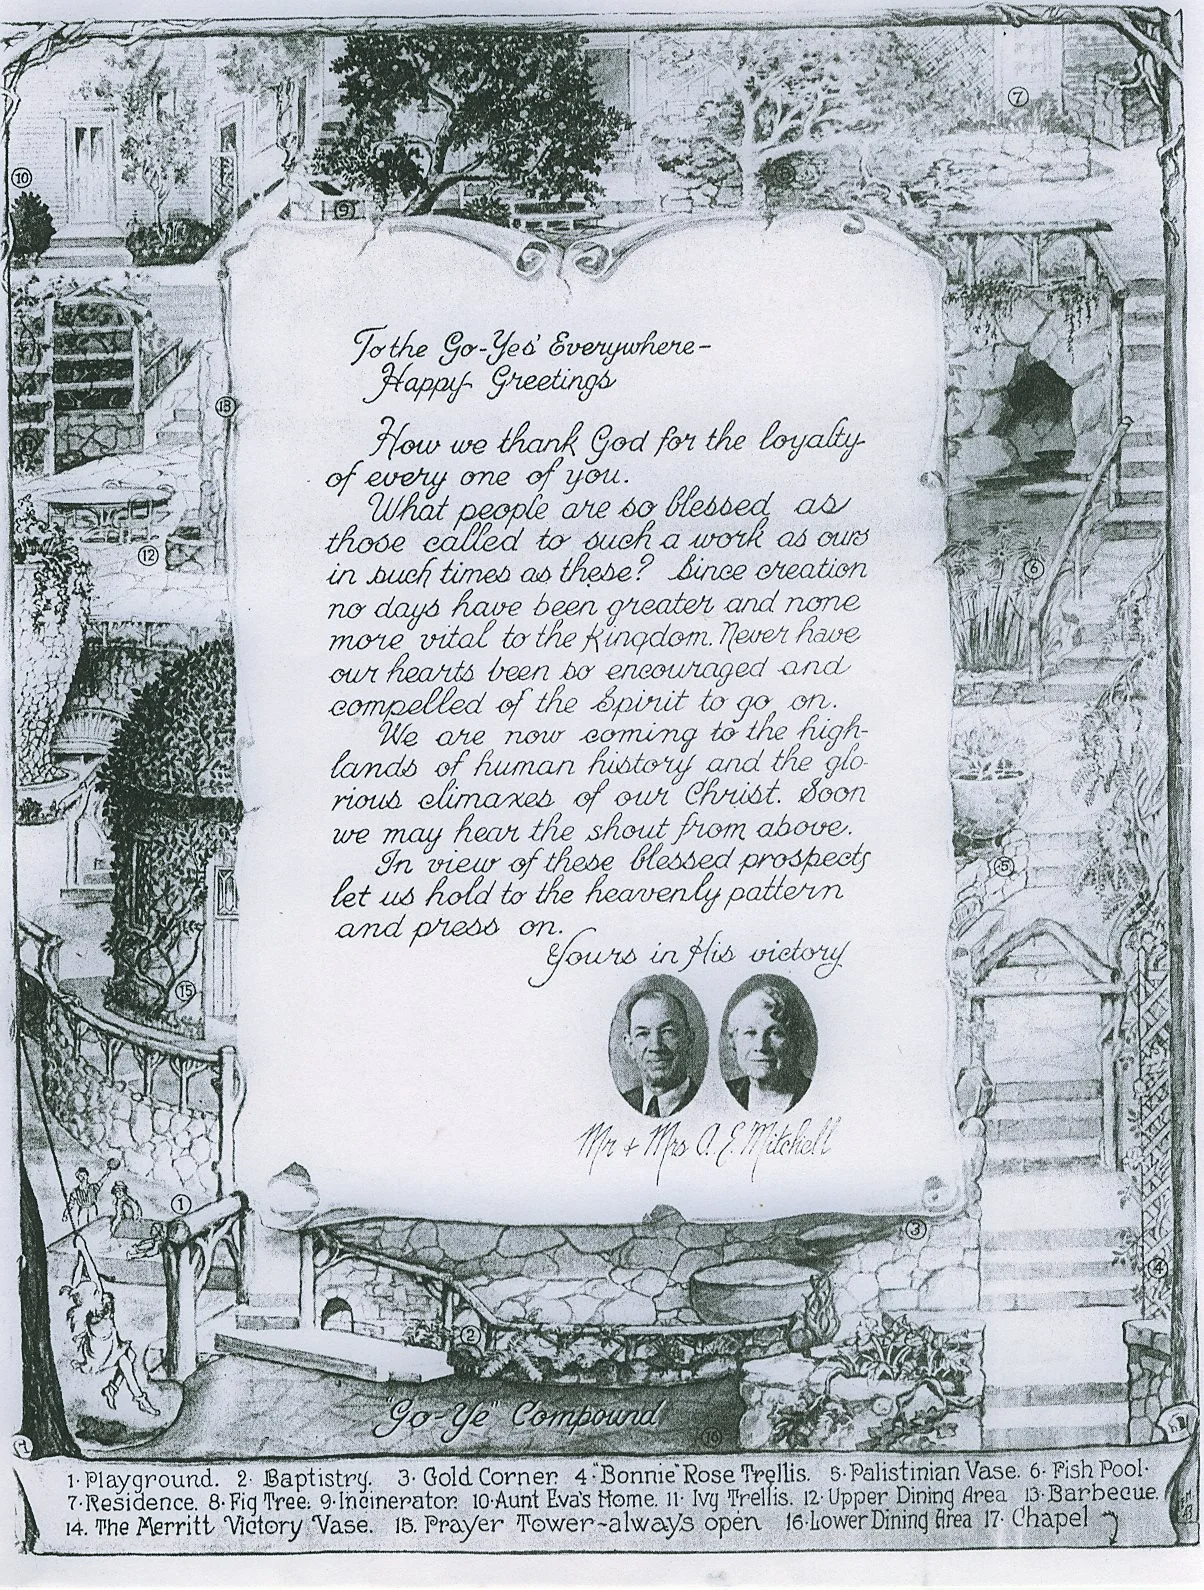 7
10
8
9
To the Go-Yes' Everywhere-
Happy Greetings
How we thank God for the loyalty
of every one of you.
What people are so blessed as
those called to such a work as ours
in such times as these? Since creation
no days have been greater and none
more vital to the Kingdom. Never have
our hearts been so encouraged and
compelled of the Spirit to go on.
We are now coming to the high-
lands of human history and the glo-
rious climaxes of our Christ. Soon
we may hear the shout from above.
In view of these blessed prospects
let us hold to the heavenly pattern
and press on.
Yours in His victory
Mr + Mrs A. E. Mitchell
13
11
12
6
5
15
1
3
4
2
"Go-Ye" Compound
16
1. Playground. 2. Baptistry. 3. Gold Corner. 4. "Bonnie" Rose Trellis. 5. Palistinian Vase. 6. Fish Pool.
7. Residence. 8. Fig Tree. 9. Incinerator. 10. Aunt Eva's Home. 11. Ivy Trellis. 12. Upper Dining Area 13. Barbecue.
14. The Merritt Victory Vase. 15. Prayer Tower-always open 16. Lower Dining Area 17. Chapel